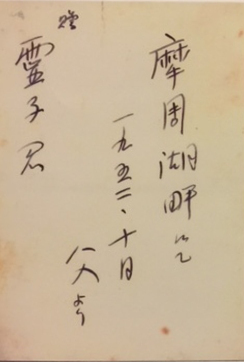 摩周湖畔にて
一九五二、十日
公人より
靈子君
贈